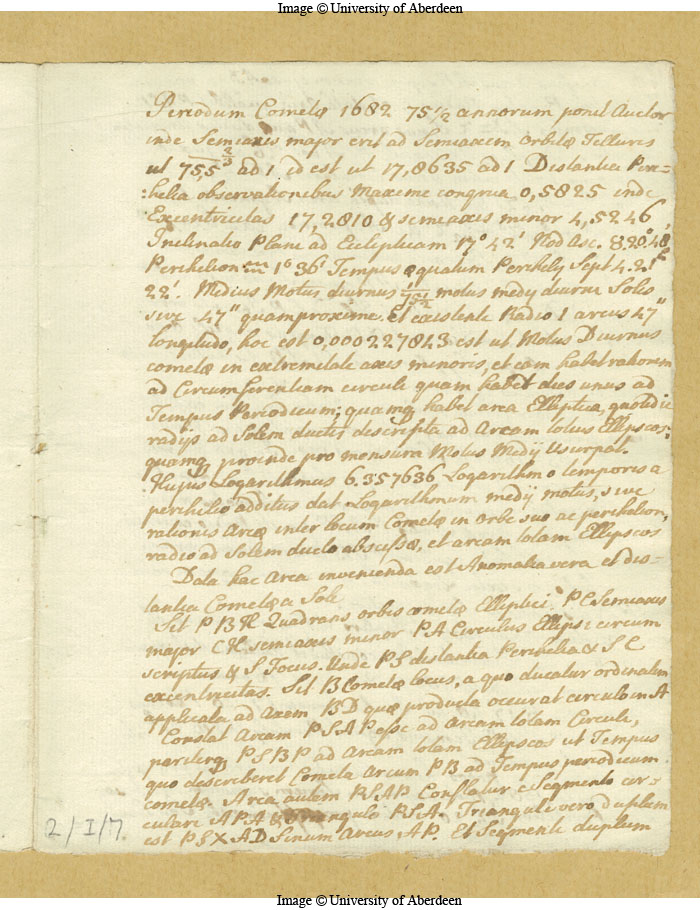 Image © University of Aberdeen
Periodum Cometæ 1682 75 1/2 annorum ponit Auctor
inde Semiaxis major erit ad Semiaxem Orbitæ Telluris
ut 75,5 2/3 ad 1. id est ut 17,8635 ad 1 Distantia Peri=
:helia observationibus Maxime congrua 0,5825 inde
Excentricitas 17,2810 & semiaxis minor 4,5246,
Inclinatio Plani ad Eclipticam 17° 42' Nod Asc.
Perihelion 1° 36' Tempus æquatum Perihelij Sept 4. 21h
22'. Medius Motus diurnus motus medij diurni Solis
sive 47" quamproxime. Et existente Radio 1 arcus 47"
longitudo, hoc est 0,000227843 est ut Motus Diurnus
cometæ in extremitate axis minoris, et eam habet rationem
ad Circumferentiam circuli quam habet dies unus ad
Tempus Periodicum; quamq habet area Elliptica, quotidie
radijs ad Solem ductis descripta ad Aream totius Ellipseos,
quamq proinde pro mensura Motus Medij Usurpat.
Hujus Logarithmus 6.357636 Logarithmo temporis a
perihelio additus dat Logarithmum medij motus, sive
rationis Areæ inter locum Cometæ in Orbe suo ac perihelion,
radio ad Solem ducto abscissæ, et aream totam Ellipseos
Data hac Area invenienda est Anomalia vera et dis-
tantia Cometæ a Sole
Sit P B H Quadrans orbis cometæ Elliptici, P C Semiaxis
major C H semiaxis minor P A Circulus Ellipsi circum
scriptus & S Focus. Unde P S distantia Perihelia & S C
excentricitas. Sit B Cometæ locus, a quo ducatur ordinatim
applicata ad Axem B D quæ producta occurat circulo in A
Constat Aream P S A P esse ad Aream totam Circuli,
pariterq P S B P ad Aream totam Ellipseos ut Tempus
quo describeret Cometa Arcum P B ad Tempus periodicum
cometæ. Area autem P S A P Conflatur e Segmento cir-
culari A P A & Triangulo P S A. Trianguli vero duplum
est P S X A D Sinum Arcus A P. Et Segmenti duplum
2/I/7.
Image © University of Aberdeen